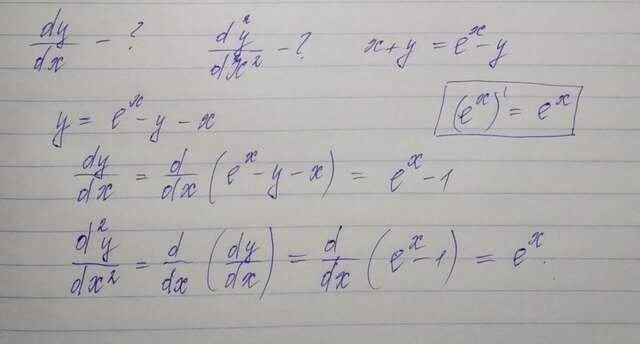 dy/dx - ? d²y/dx² - ? x + y = e^x - y
y = e^x - y - x (e^x)' = e^x
dy/dx = d/dx (e^x - y - x) = e^x - 1
d²y/dx² = d/dx (dy/dx) = d/dx (e^x - 1) = e^x.